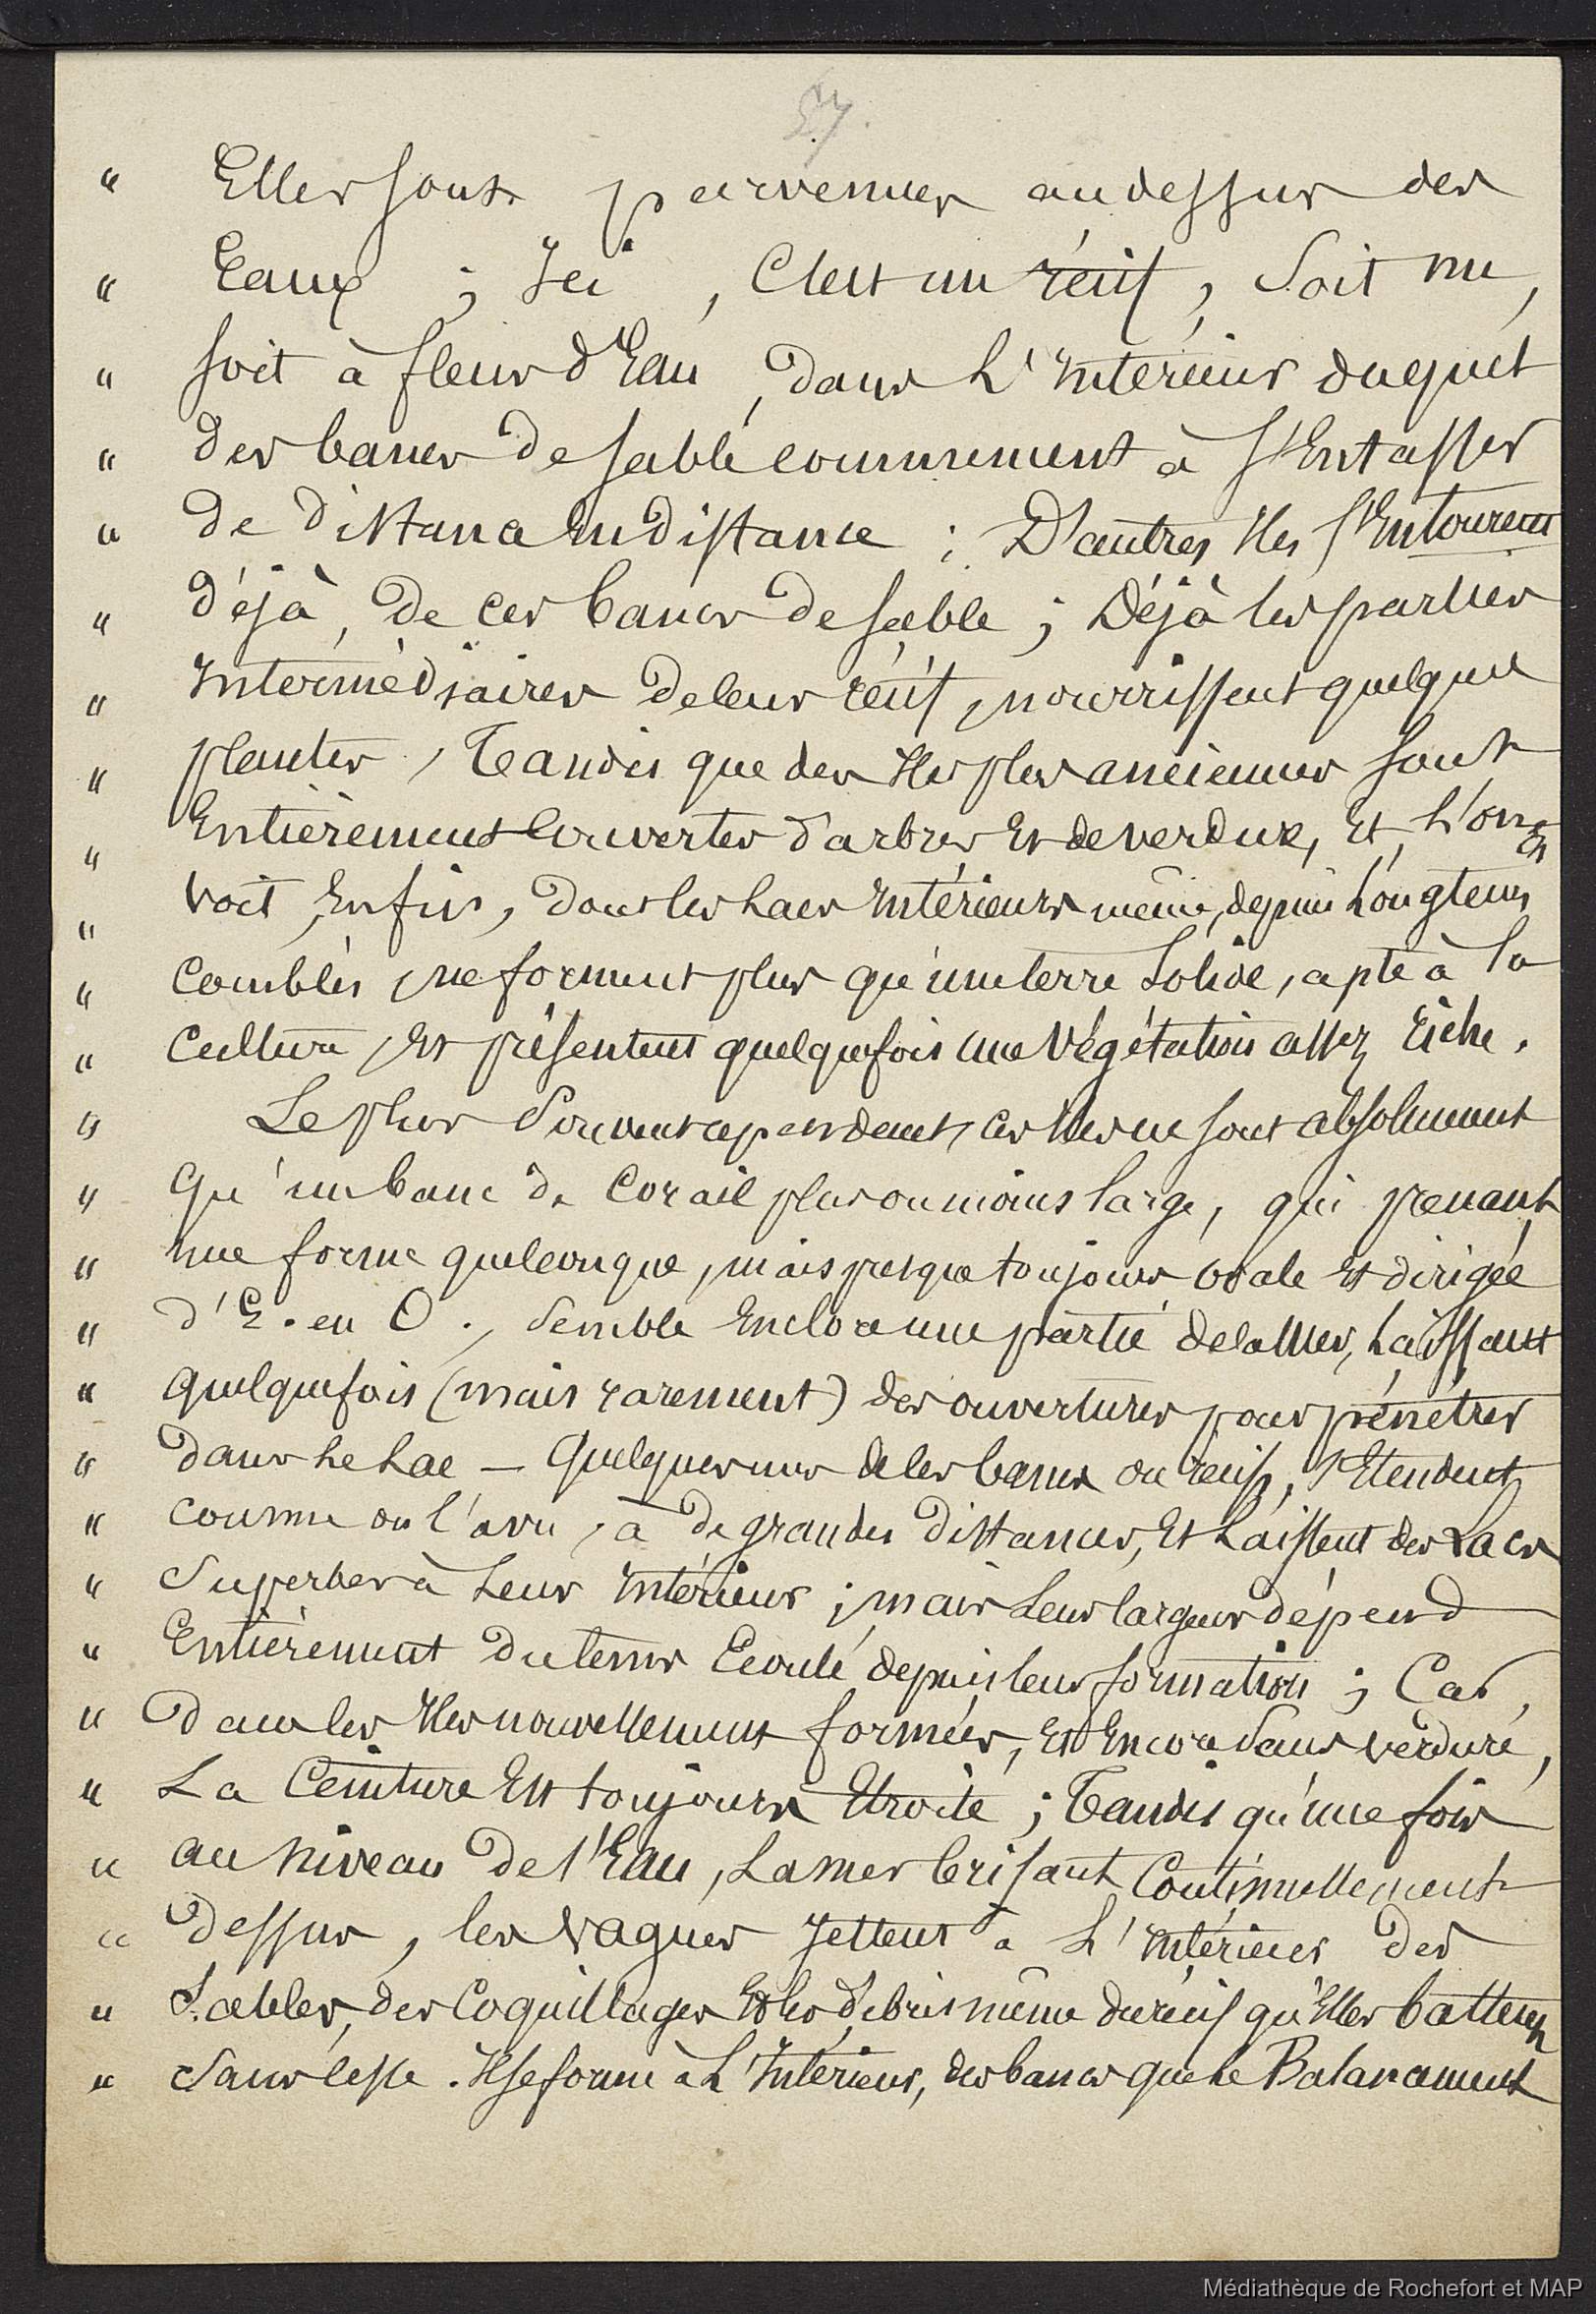 57.
" Elles sont parvenues au dessus des
" Eaux ; Ici , C'est un récif , Soit nu ,
" soit à fleur d'Eau , dans L'Intérieur duquel
" des bancs de sable commencent à s'Entasser
" de distance En distance ; D'autres Iles s'Entourent
" déjà , de ces bancs de sable ; Déjà les parties
" Intermédiaires de leur récif , nourrissent quelques
" plantes , Tandis que des Iles plus anciennes sont
" Entièrement Couvertes d'arbres Et de verdure, Et, L'on En
" Voit Enfin , dont les Lacs Intérieurs même, depuis Longtems
" Comblés , ne forment plus qu'une terre Solide , apte à la
" Culture , Et présentent quelquefois une Végétation assez riche .
" Le plus Souvent cependant, ces Iles ne sont absolument
" Qu'un banc de Corail plus ou moins large, qui prenant
" une forme quelconque , mais presque toujours ovale Et dirigée
" d'E. en O ., Semble Enclore une partie de la Mer, Laissant
" quelquefois (mais rarement) des ouvertures pour pénétrer
" dans Le Lac — Quelques uns de ces bancs ou récifs, s'Etendent
" comme on l'a vu , à de grandes distances, Et Laissent des Lacs
" Superbes à Leur Intérieur ; mais Leur largeur dépend
" Entièrement du tems Ecoulé depuis leur formation ; Car,
" dans les Iles nouvellement formées, Et Encore Sans verdure,
" La Ceinture Est toujours Etroite ; Tandis qu'une fois
" au Niveau de l'Eau , La mer brisant Continuellement
" dessus , les Vagues Jettent à L'Intérieur des
" Sables, des Coquillages Et les débris même du récif qu'Elles battent
" Sans Cesse . Il se forme à L'Intérieur, des bancs que Le Balancement
Médiathèque de Rochefort et MAP